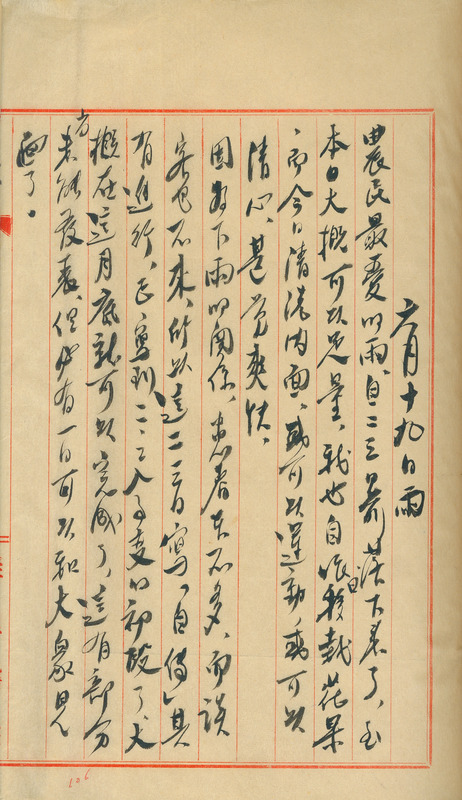 六月十九日雨
農民最愛的雨、自二三日前落下着了、至
本日大概可以足量、我也自昨日移栽花果
、而今日清洗內面、或可以運動、或可以
清心、甚覺爽快。
因為下雨的關係、患者來不多、而談
客也不來、所以這二三日寫「自傳」甚
有進行、已寫到二二八事變的初段了、大
概在這月底就可以完成了、這有部分
尚未能發表、但必有一日可以和大衆見
面了。